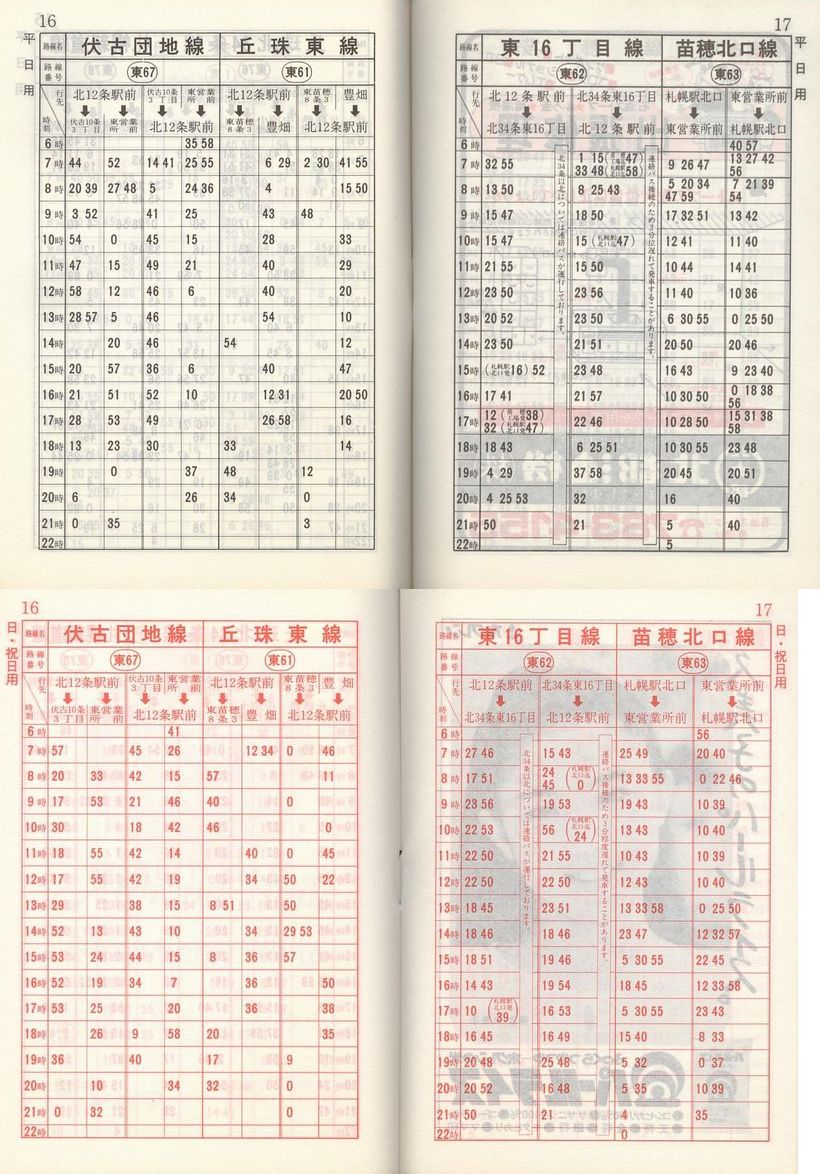 16
平日用
路線名 伏古団地線 丘珠東線
路線番号 東67 東61
行先 北12条駅前 伏古10条3丁目 東営業所前 北12条駅前 東苗穂8条3 豊畑
時刻 伏古10条3丁目 東営業所前 北12条駅前 東苗穂8条3 豊畑 北12条駅前
6時 35 58
7時 44 52 14 41 25 55 6 29 2 30 41 55
8時 20 39 27 48 5 24 36 4 11 15 50
9時 3 52 41 25 43 48
10時 54 0 45 15 28 33
11時 47 15 49 21 40 29
12時 58 12 46 6 40 20
13時 28 57 5 46 54 10
14時 20 46 54 12
15時 20 57 36 6 40 47
16時 21 51 52 10 12 31 20 50
17時 28 53 49 26 58 16
18時 13 23 30 33 14
19時 0 37 48 12
20時 6 26 34 0
21時 0 35 3
22時
17
平日用
路線名 東16丁目線 苗穂北口線
路線番号 東62 東63
行先 北12条駅前 北34条東16丁目 札幌駅北口 東営業所前
時刻 北34条東16丁目 北12条駅前 東営業所前 札幌駅北口
6時 40 57
7時 32 55 1 15 (47) 33 48 (58) 9 26 47 13 27 42 56
8時 13 50 8 25 43 5 20 34 47 59 7 21 39 54
9時 15 47 18 50 17 32 51 13 42
10時 15 47 15 (札幌駅北口発47) 12 41 11 40
11時 21 55 15 50 10 44 14 41
12時 23 50 23 56 11 40 10 36
13時 20 52 23 50 6 30 55 0 25 50
14時 23 50 21 51 20 50 20 46
15時 (札幌駅北口発16) 52 23 48 16 43 9 23 40
16時 17 41 21 57 10 30 50 0 18 38 56
17時 12 (38) 32 (札幌駅北口発47) 22 46 10 28 50 15 31 38 58
18時 18 43 6 25 51 10 30 55 23 48
19時 4 29 37 58 20 45 20 51
20時 4 25 53 32 16 40
21時 50 21 5 40
22時 5
北34条以北については連絡バスが運行しております。
連絡バス接続のため3分位遅れて発車することがあります。
16
日・祝日用
路線名 伏古団地線 丘珠東線
路線番号 東67 東61
行先 北12条駅前 伏古10条3丁目 東営業所前 北12条駅前 東苗穂8条3 豊畑
時刻 伏古10条3丁目 東営業所前 北12条駅前 東苗穂8条3 豊畑 北12条駅前
6時 41
7時 57 45 26 12 34 0 46
8時 20 33 42 15 57 11
9時 17 53 21 46 40 0
10時 30 18 42 46 0
11時 18 55 42 14 40 0 45
12時 17 55 42 19 34 50 22
13時 29 38 15 8 51 50
14時 52 13 43 10 34 29 53
15時 53 24 44 15 8 36 57
16時 52 19 34 7 36 50
17時 53 25 20 36 38
18時 26 9 58 20 35
19時 36 40 17 9
20時 10 34 32 0
21時 0 32 0
22時
17
日・祝日用
路線名 東16丁目線 苗穂北口線
路線番号 東62 東63
行先 北12条駅前 北34条東16丁目 札幌駅北口 東営業所前
時刻 北34条東16丁目 北12条駅前 東営業所前 札幌駅北口
6時 56
7時 27 46 15 43 25 49 20 40
8時 17 51 24 45 (札幌駅北口発0) 13 33 55 0 22 46
9時 23 56 19 53 19 43 10 39
10時 22 53 56 (札幌駅北口発24) 13 43 10 40
11時 22 50 21 55 10 43 10 39
12時 22 50 22 50 12 43 10 40
13時 18 45 23 51 13 33 58 0 25 50
14時 18 46 18 46 23 47 12 32 57
15時 18 51 19 46 5 30 55 22 45
16時 14 43 19 54 18 45 12 33 58
17時 10 (札幌駅北口発39) 16 53 5 30 55 23 43
18時 16 45 16 49 15 40 8 33
19時 20 48 25 48 5 32 0 37
20時 20 52 16 48 5 35 10 39
21時 50 21 4 35
22時 0
北34条以北については連絡バスが運行しております。
連絡バス接続のため3分程度遅れて発車することがあります。